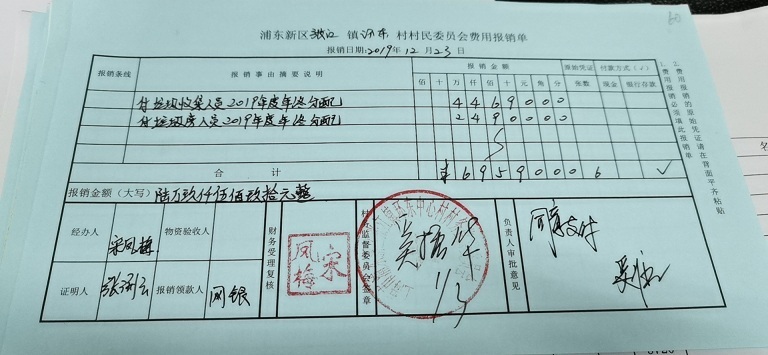 浦东新区 张江 镇 沔东 村村民委员会费用报销单
报销日期:2019年12月23日
报销条线 报销事由摘要说明 报销金额 原始凭证 付款方式(√)
佰 十 万 仟 佰 十 元 角 分 张数 现金 银行存款
付垃圾收集人员2019年度年终分配 4 4 6 9 0 0 0
付垃圾房人员2019年度年终分配 2 4 9 0 0 0 0
合计 ¥ 6 9 5 9 0 0 0 6 √
报销金额(大写) 陆万玖仟伍佰玖拾元整
经办人 宋凤梅 物资验收人
证明人 报销领款人 网银
财务受理复核
宋凤梅
村务监督委员会签章
1/3
负责人审批意见
同意支付
1、费用报销必须填此报销单
2、费用报销的原始凭证请在背面平齐粘贴
60